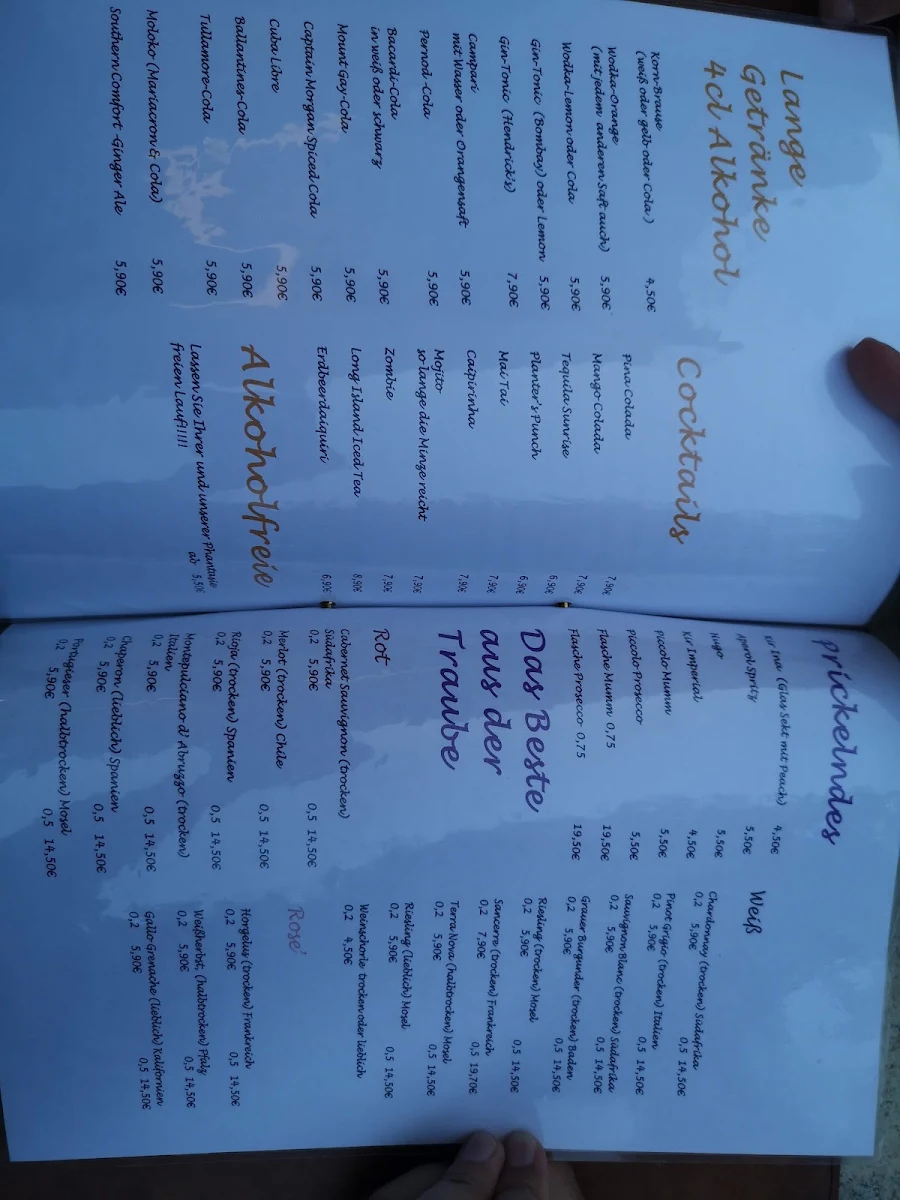 Lange
Getränke
4cl Alkohol
Korn-Brause
(weiß oder gelb oder Cola) 4,50€
Wodka-Orange
(mit jedem anderen Saft auch) 5,90€
Wodka-Lemon oder Cola 5,90€
Gin-Tonic (Bombay) oder Lemon 5,90€
Gin-Tonic (Hendrick's) 7,90€
Campari
mit Wasser oder Orangensaft 5,90€
Pernod-Cola 5,90€
Bacardi-Cola
in weiß oder schwarz 5,90€
Mount Gay-Cola 5,90€
Captain Morgan Spiced-Cola 5,90€
Cuba Libre 5,90€
Ballantines-Cola 5,90€
Tullamore-Cola 5,90€
Moloko (Mariacron & Cola) 5,90€
Southern Comfort -Ginger Ale 5,90€
Cocktails
Pina Colada 7,90€
Mango Colada 7,90€
Tequila Sunrise 6,90€
Planter's Punch 6,90€
Mai Tai 7,90€
Caipirinha 7,90€
Mojito
so lange die Minze reicht 7,90€
Zombie 7,90€
Long Island Iced Tea 8,90€
Erdbeerdaiquiri 6,90€
Alkoholfreie
Lassen Sie Ihrer und unserer Phantasie
freien Lauf!!!!! ab 5,50€
prickelndes
Kir Ina (Glas Sekt mit Peach) 4,50€
Aperol Spritz 5,50€
Hugo 5,50€
Kir Imperial 4,50€
Piccolo Mumm 5,50€
Piccolo Prosecco 5,50€
Flasche Mumm 0,75 19,50€
Flasche Prosecco 0,75 19,50€
Das Beste
aus der
Traube
Rot
Cabernet Sauvignon (trocken)
Südafrika
0,2 5,90€ 0,5 14,50€
Merlot (trocken) Chile
0,2 5,90€ 0,5 14,50€
Rioja (trocken) Spanien
0,2 5,90€ 0,5 14,50€
Montepulciano d' Abruzzo (trocken)
Italien
0,2 5,90€ 0,5 14,50€
Chaperon (lieblich) Spanien
0,2 5,90€ 0,5 14,50€
Portugieser (halbtrocken) Mosel
0,2 5,90€ 0,5 14,50€
Weiß
Chardonnay (trocken) Südafrika
0,2 5,90€ 0,5 14,50€
Pinot Grigio (trocken) Italien
0,2 5,90€ 0,5 14,50€
Sauvignon Blanc (trocken) Südafrika
0,2 5,90€ 0,5 14,50€
Grauer Burgunder (trocken) Baden
0,2 5,90€ 0,5 14,50€
Riesling (trocken) Mosel
0,2 5,90€ 0,5 14,50€
Sancerre (trocken) Frankreich
0,2 7,90€ 0,5 19,70€
Terra Nova (halbtrocken) Mosel
0,2 5,90€ 0,5 14,50€
Riesling (lieblich) Mosel
0,2 5,90€ 0,5 14,50€
Weinschorle trocken oder lieblich
0,2 4,50€
Rose'
Horgelus (trocken) Frankreich
0,2 5,90€ 0,5 14,50€
Weißherbst, (halbtrocken) Pfalz
0,2 5,90€ 0,5 14,50€
Gallo Grenache (lieblich) Kalifornien
0,2 5,90€ 0,5 14,50€